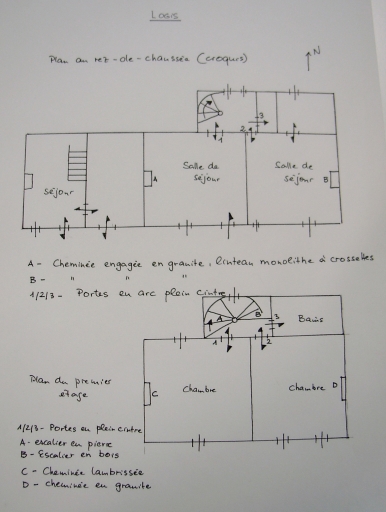 LOGIS
Plan au rez-de-chaussée (croquis)
N
3
2
1
A
Salle de
séjour
Salle de
séjour
B
séjour
A - Cheminée engagée en granite, linteau monolithe à crossettes
B - " " "
1/2/3 - Portes en arc plein cintre
A
B
3
Bains
1
2
Plan du premier
etage
C
Chambre
Chambre D
1/2/3 - Portes en plein cintre
A - escalier en pierre
B - Escalier en bois
C - Cheminée lambrissée
D - cheminée en granite